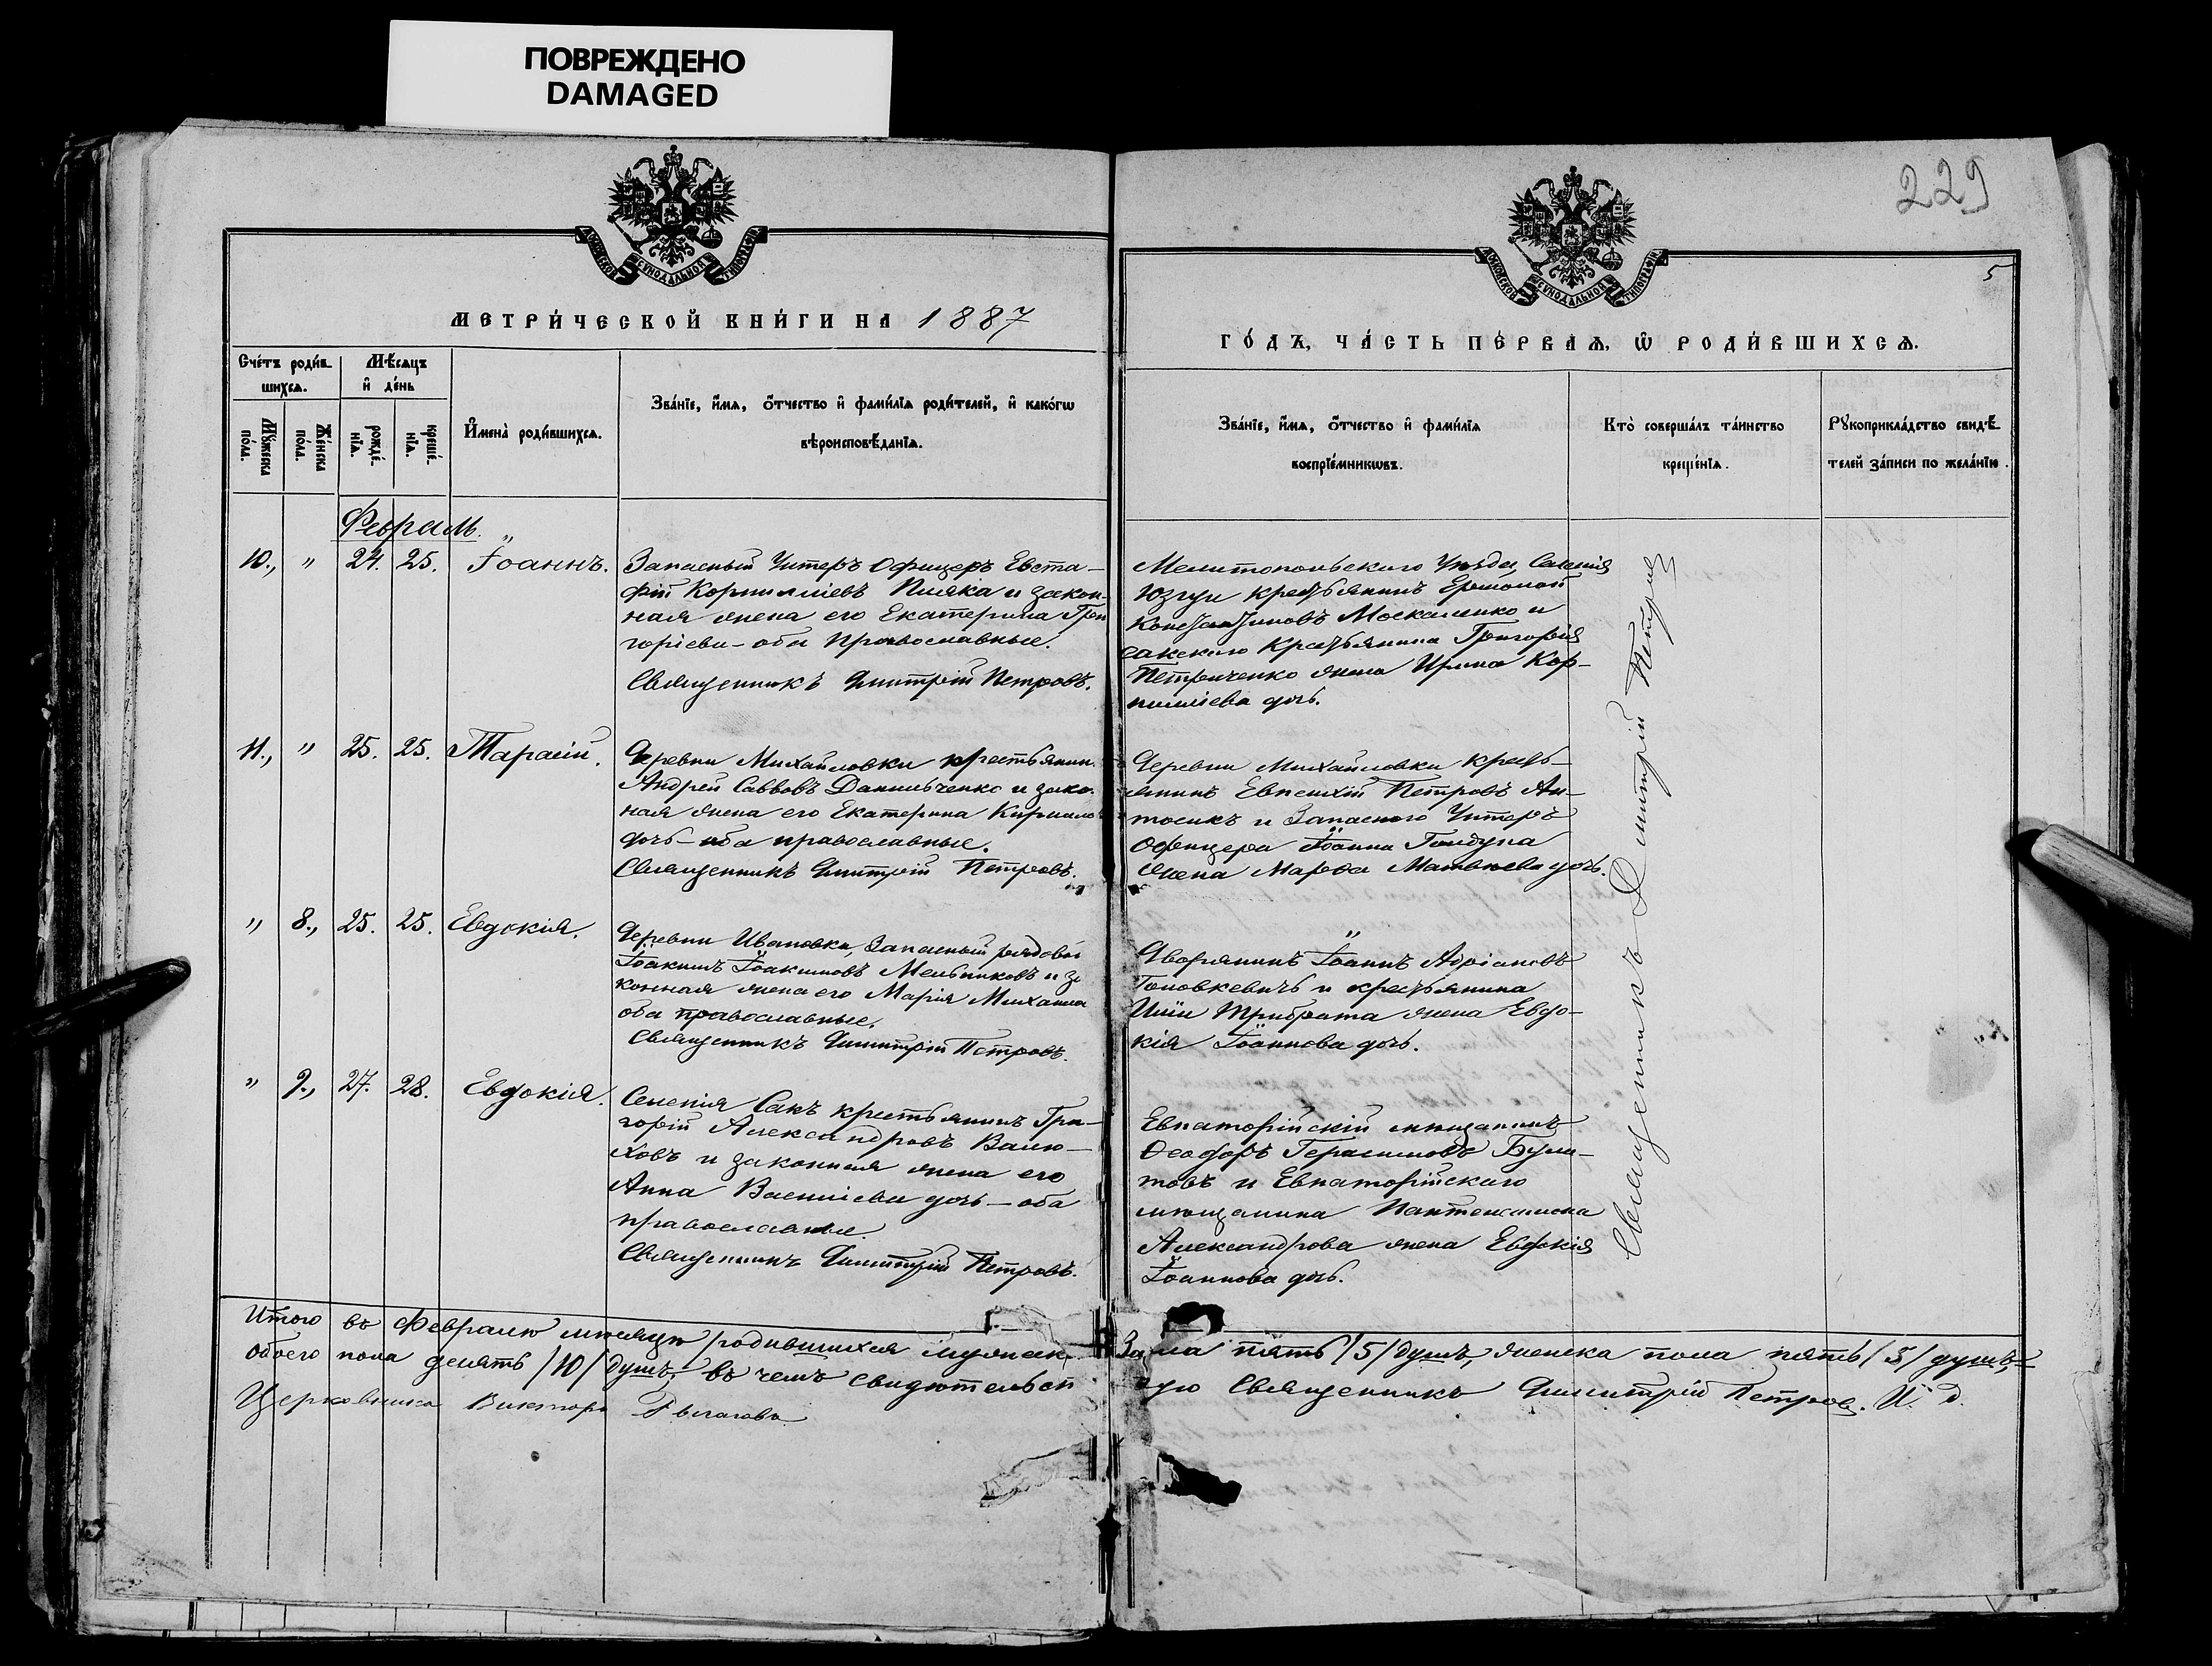 ПОВРЕЖДЕНО
DAMAGED
229
5
МОСКОВСКОЙ СУНОДАЛЬНОЙ ТИПОГРАФІИ
МОСКОВСКОЙ СУНОДАЛЬНОЙ ТИПОГРАФІИ
МЕТРИ́ЧЕСКОЙ КНИ́ГИ НА 1887
ГО́ДЪ, ЧА́СТЬ ПЕ́РВАѦ, Ѡ РОДИ́ВШИХСѦ.
Сче́тъ роди́в
шихсѧ.
Мѣ́сѧцъ
и҆ де́нь
Мꙋ́жеска
по́ла.
Же́нска
по́ла.
рожде́-
нїѧ.
креще́-
нїѧ.
И҆мена̀ роди́вшихсѧ.
Зва́нїе, и҆́мѧ, ѻ҆́тчество и҆ фами́лїѧ роди́телей, и҆ како́гѡ
вѣроисповѣ́данїѧ.
Зва́нїе, и҆́мѧ, ѻ҆́тчество и҆ фами́лїѧ
воспрїе́мникѡвъ.
Кто̀ соверша́лъ та́инство
креще́нїѧ.
Рꙋкоприкла́дство свидѣ́-
телей за́писи по жела́нїю.
Февраль.
10., " 24. 25. Іоаннъ.
Запасный Унтеръ Офицеръ Евста-
фій Корниліевъ Пляка и закон-
ная жена его Екатерина Гри
горіева - оба православные.
Священникъ Димитрій Петровъ.
Мелитопольского Уѣзда, Селенія
Юзгуи крестьянинъ Ермолай
Константиновъ Москаленко и
сакского крестьянина Григорія
Петриченко жена Ирина Кор-
ниліева дочь.
11., " 25. 25. Тарасій.
Деревни Михайловки крестьянин
Андрей Саввовъ Данильченко и зако
ная жена его Екатерина Кирилло
дочь - оба православные.
Священникъ Димитрій Петровъ.
Деревни Михайловки кресть-
янинъ Евпсихій Петровъ Ан-
тосикъ и Запасного Унтеръ
Офицера Іоанна
жена Марѳа Матвѣева дочь.
" 8., 25. 25. Евдокія.
Деревни Ивановки, Запасный рядовой
Іоакимъ Іоакимовъ Мельниковъ и за
конная жена его Марія Михаила
оба православные.
Священникъ Димитрій Петровъ.
Дворянинъ Іоаннъ Адріановъ
Головкевичъ и крестьянина
Иліи Трибрата жена Евдо-
кія Іоаннова дочь.
" 9., 27. 28. Евдокія.
Селенія Сакъ крестьянинъ Гри-
горій Александровъ Валю-
ховъ и законная жена его
Анна Василіева дочь - оба
православные.
Священникъ Димитрій Петровъ.
Евпаторійскій мѣщанинъ
Ѳеодоръ Герасимовъ Була-
товъ и Евпаторійского
мѣщанина Пантелимона
Александрова жена Евдокія
Іоаннова дочь.
Священникъ Димитрій Петровъ
Итого въ Февралѣ мѣсяцѣ родившихся мужеск
пола пять /5/ душъ, женска пола пять /5/ душъ,
обоего пола десять /10/ душъ, въ чемъ свидѣтельств
ую Священникъ Димитрій Петров. И. д.
Церковника Викторъ